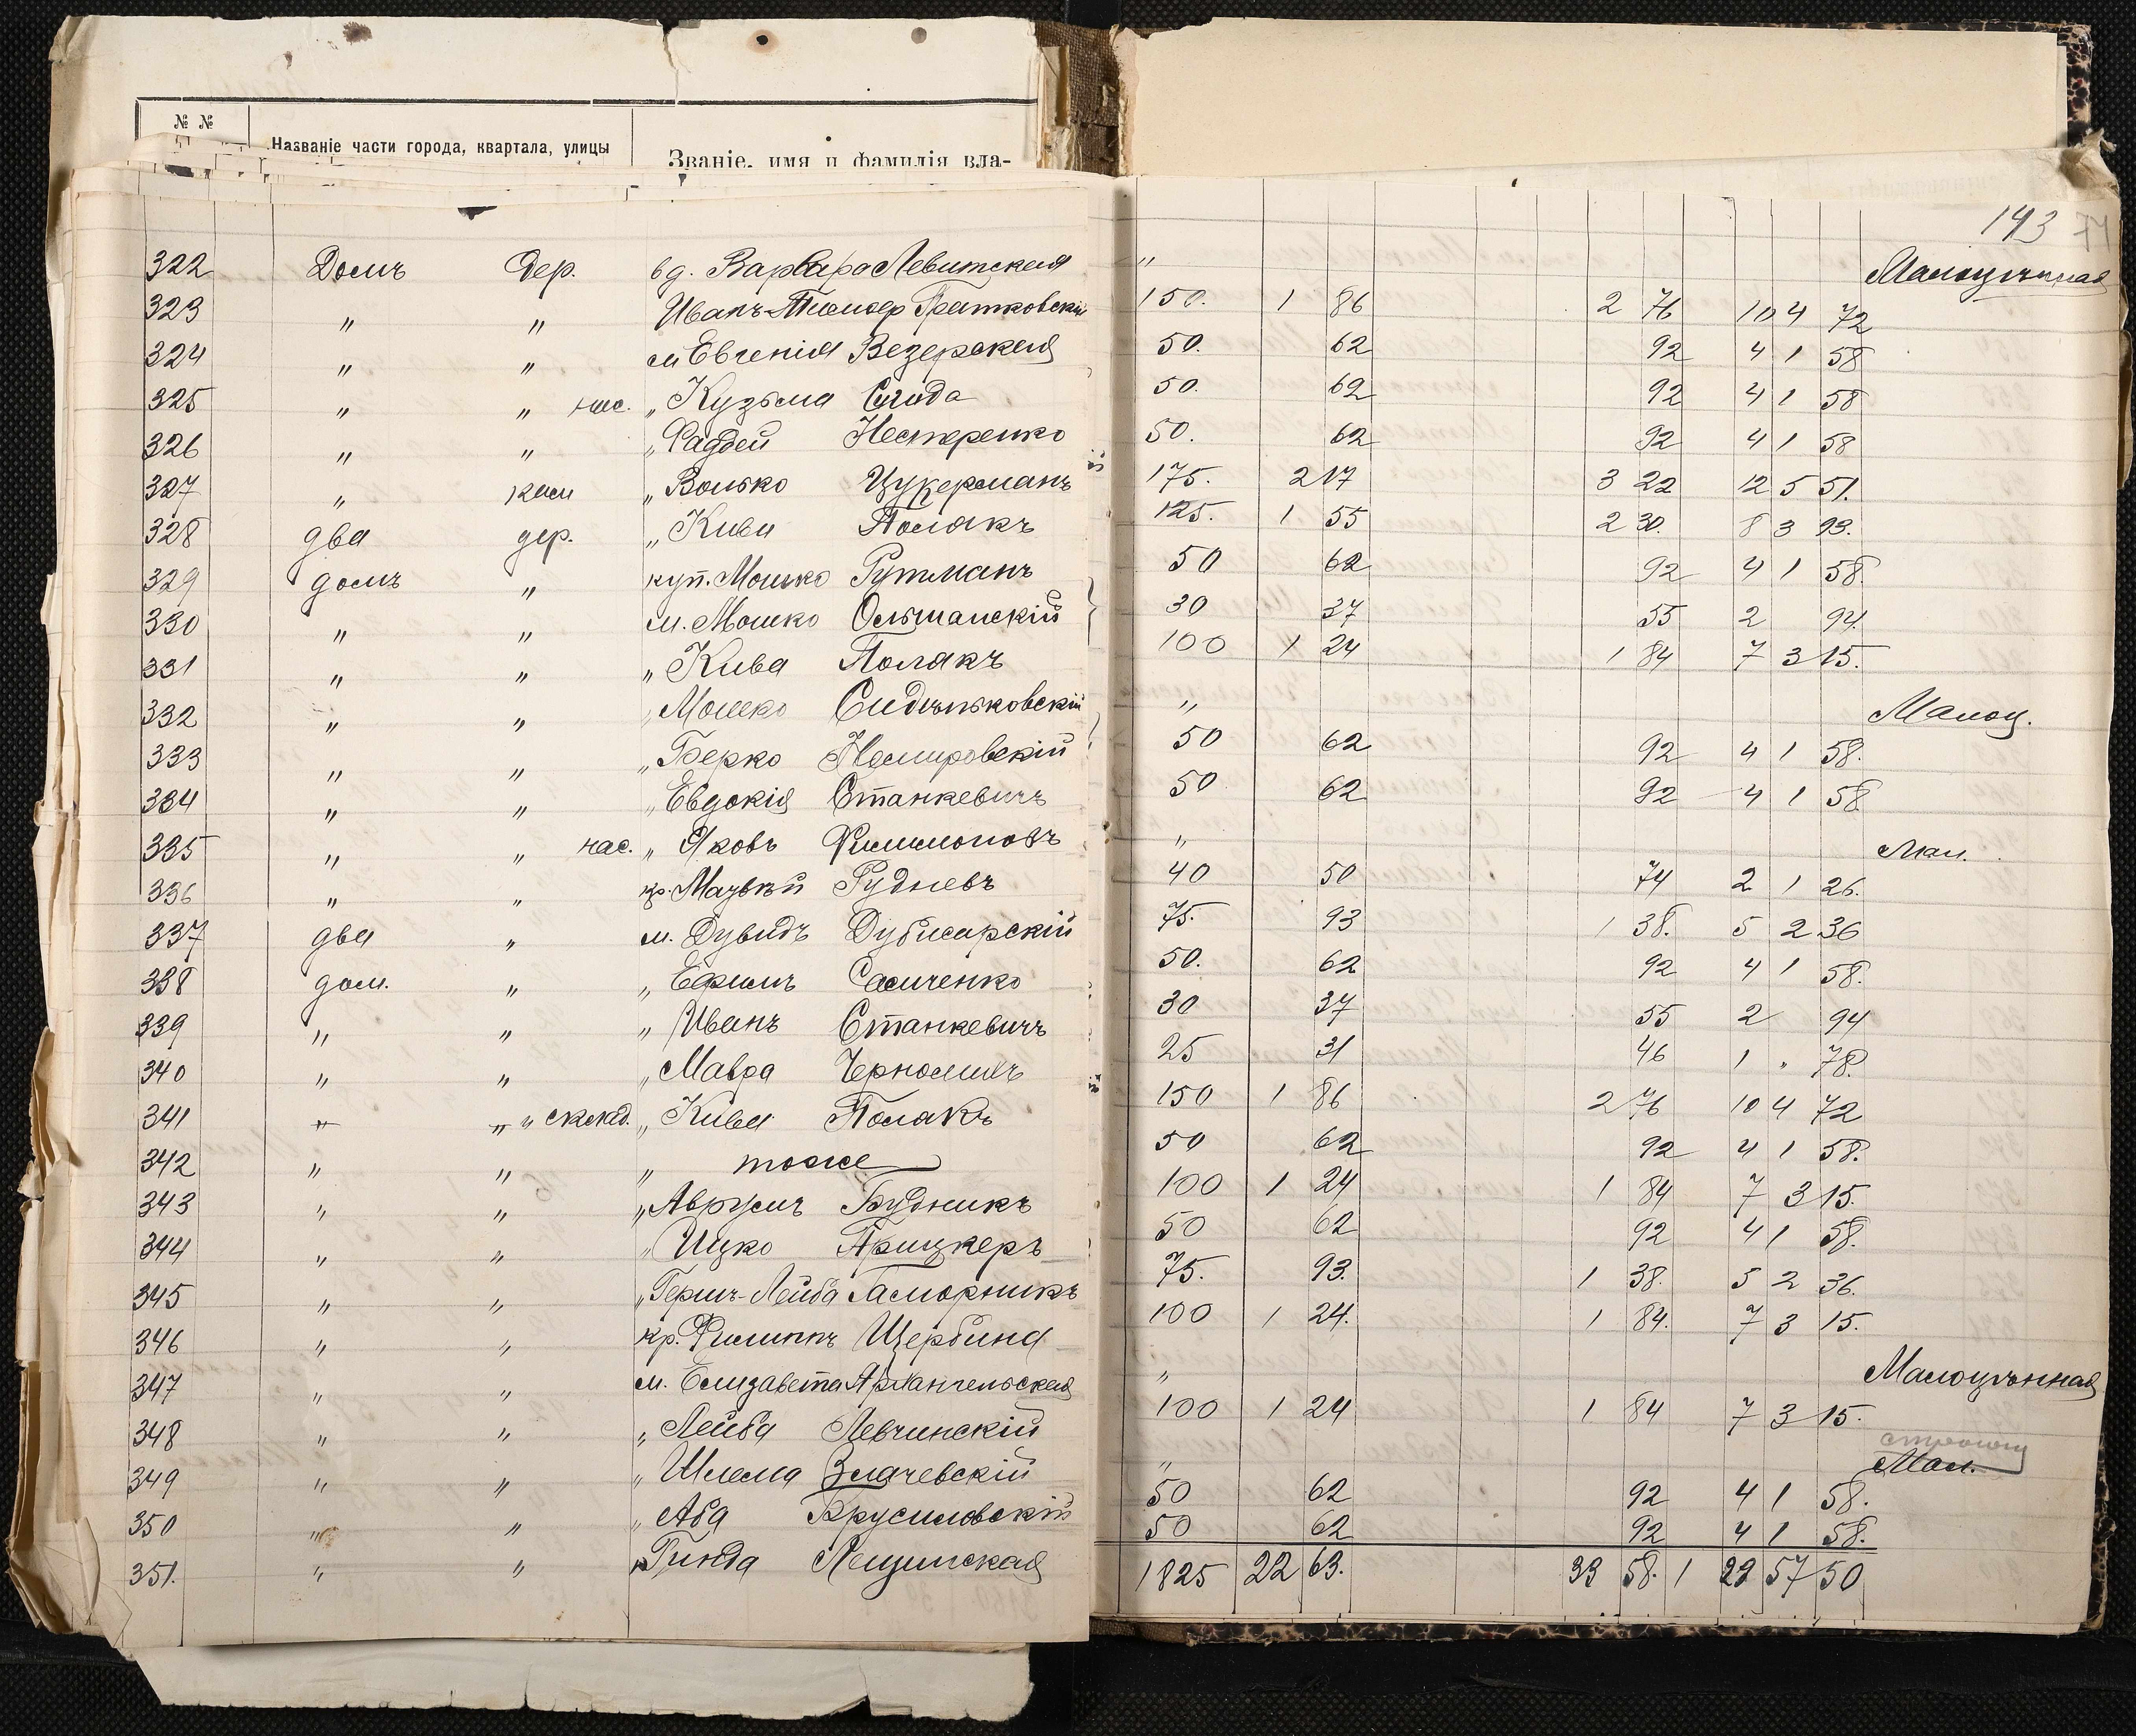 № №
Названіе части города, квартала, улицы
Званіе, имя и фамилія вла-
143
322 Домъ Дер. вд. Варвара Левитская " Малоцѣнная
323 " " Иванъ Гратковскій 150. 1 86 2 76 10 4 72
324 " " м Евгенія Везерская 50. 62 92 4 1 58
325 " " нас. " Кузьма 50. 62 92 4 1 58
326 " " " Фадей Нестеренко 50. 62 92 4 1 58
327 " кам " Волько Цукерманъ 175. 2 17 3 22 12 5 51.
328 два дер. " Кива Полакъ 125. 1 55 2 30. 8 3 93.
329 домъ " куп. Мошко Гутманъ 50 62 92 4 1 58
330 " " м. Мошко Ольшанскій 30 37 55 2 94.
331 " " " Кива Полакъ 100 1 24 1 84 7 3 15.
332 " " " Мошко Сидѣльковскій " Малоц.
333 " " " Берко Немировскій 50 62 92 4 1 58.
334 " " " Евдокія Станкевичъ 50 62 92 4 1 58
335 " " нас. " Яковъ Филимоновъ " Мал.
336 " " кр. Матвѣй Рудневъ 40 50 74 2 1 26.
337 два " м. Дувидъ Дубисарскій 75. 93 1 38. 5 2 36
338 дом. " " Ефимъ Самченко 50. 62 92 4 1 58.
339 " " " Иванъ Станкевичъ 30 37 55 2 94
340 " " " Мавра 25 31 46 1 " 78.
341 " " " склад. " Кива Полакъ 150 1 86 2 76 10 4 72
342 " " " тоже 50 62 92 4 1 58.
343 " " " Аврумъ Будникъ 100 1 24 1 84 7 3 15
344 " " " Ицко Прицкеръ 50 62 92 4 1 58.
345 " " " Гершъ-Лейба 75. 93. 1 38. 5 2 36.
346 " " кр. Филиппъ Щербина 100 1 24. 1 84. 7 3 15.
347 " " м. Елизавета Архангельская " Малоцѣнная
348 " " " Лейба Левчинскій 100 1 24 1 84 7 3 15.
349 " " " Шлема Злачевскій " Мал.
350 " " " Аба Брусиловскій 50 62 92 4 1 58.
351. " " " Гинда Лещинская 50 62 92 4 1 58.
1825 22 63. 33 58. 1 22 57 50